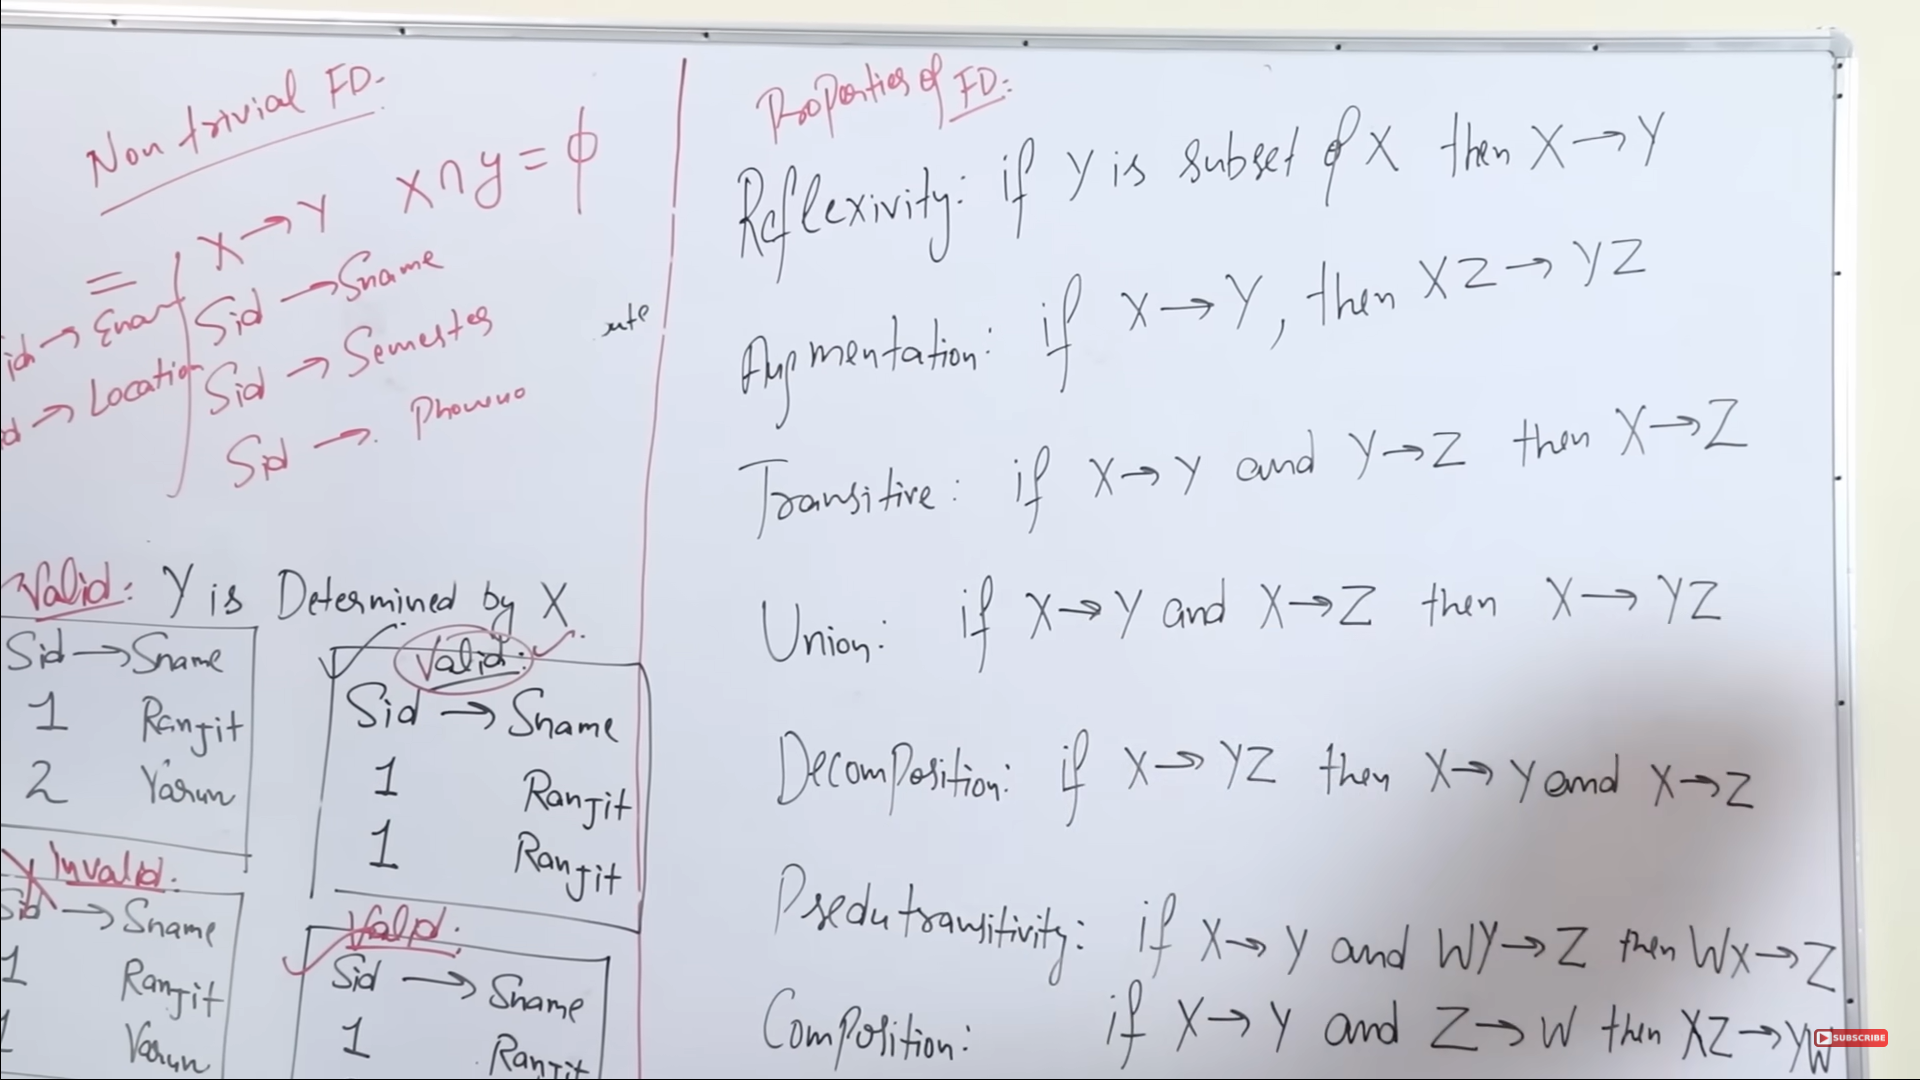 Non trivial FD:
X → Y X ∩ Y = ϕ
Sid → Sname
Sid → Semester
→ Location
Sid → Phoneno
Valid: Y is Determined by X
Sid → Sname
1 Ranjit
2 Varun
Invalid:
Sid → Sname
1 Ranjit
1 Varun
Valid:
Sid → Sname
1 Ranjit
1 Ranjit
Valid:
Sid → Sname
1 Ranjit
Properties of FD:
Reflexivity: if Y is subset of X then X → Y
Augmentation: if X → Y, then XZ → YZ
Transitive: if X → Y and Y → Z then X → Z
Union: if X → Y and X → Z then X → YZ
Decomposition: if X → YZ then X → Y and X → Z
Psedutransitivity: if X → Y and WY → Z then WX → Z
Composition: if X → Y and Z → W then XZ → YW
SUBSCRIBE